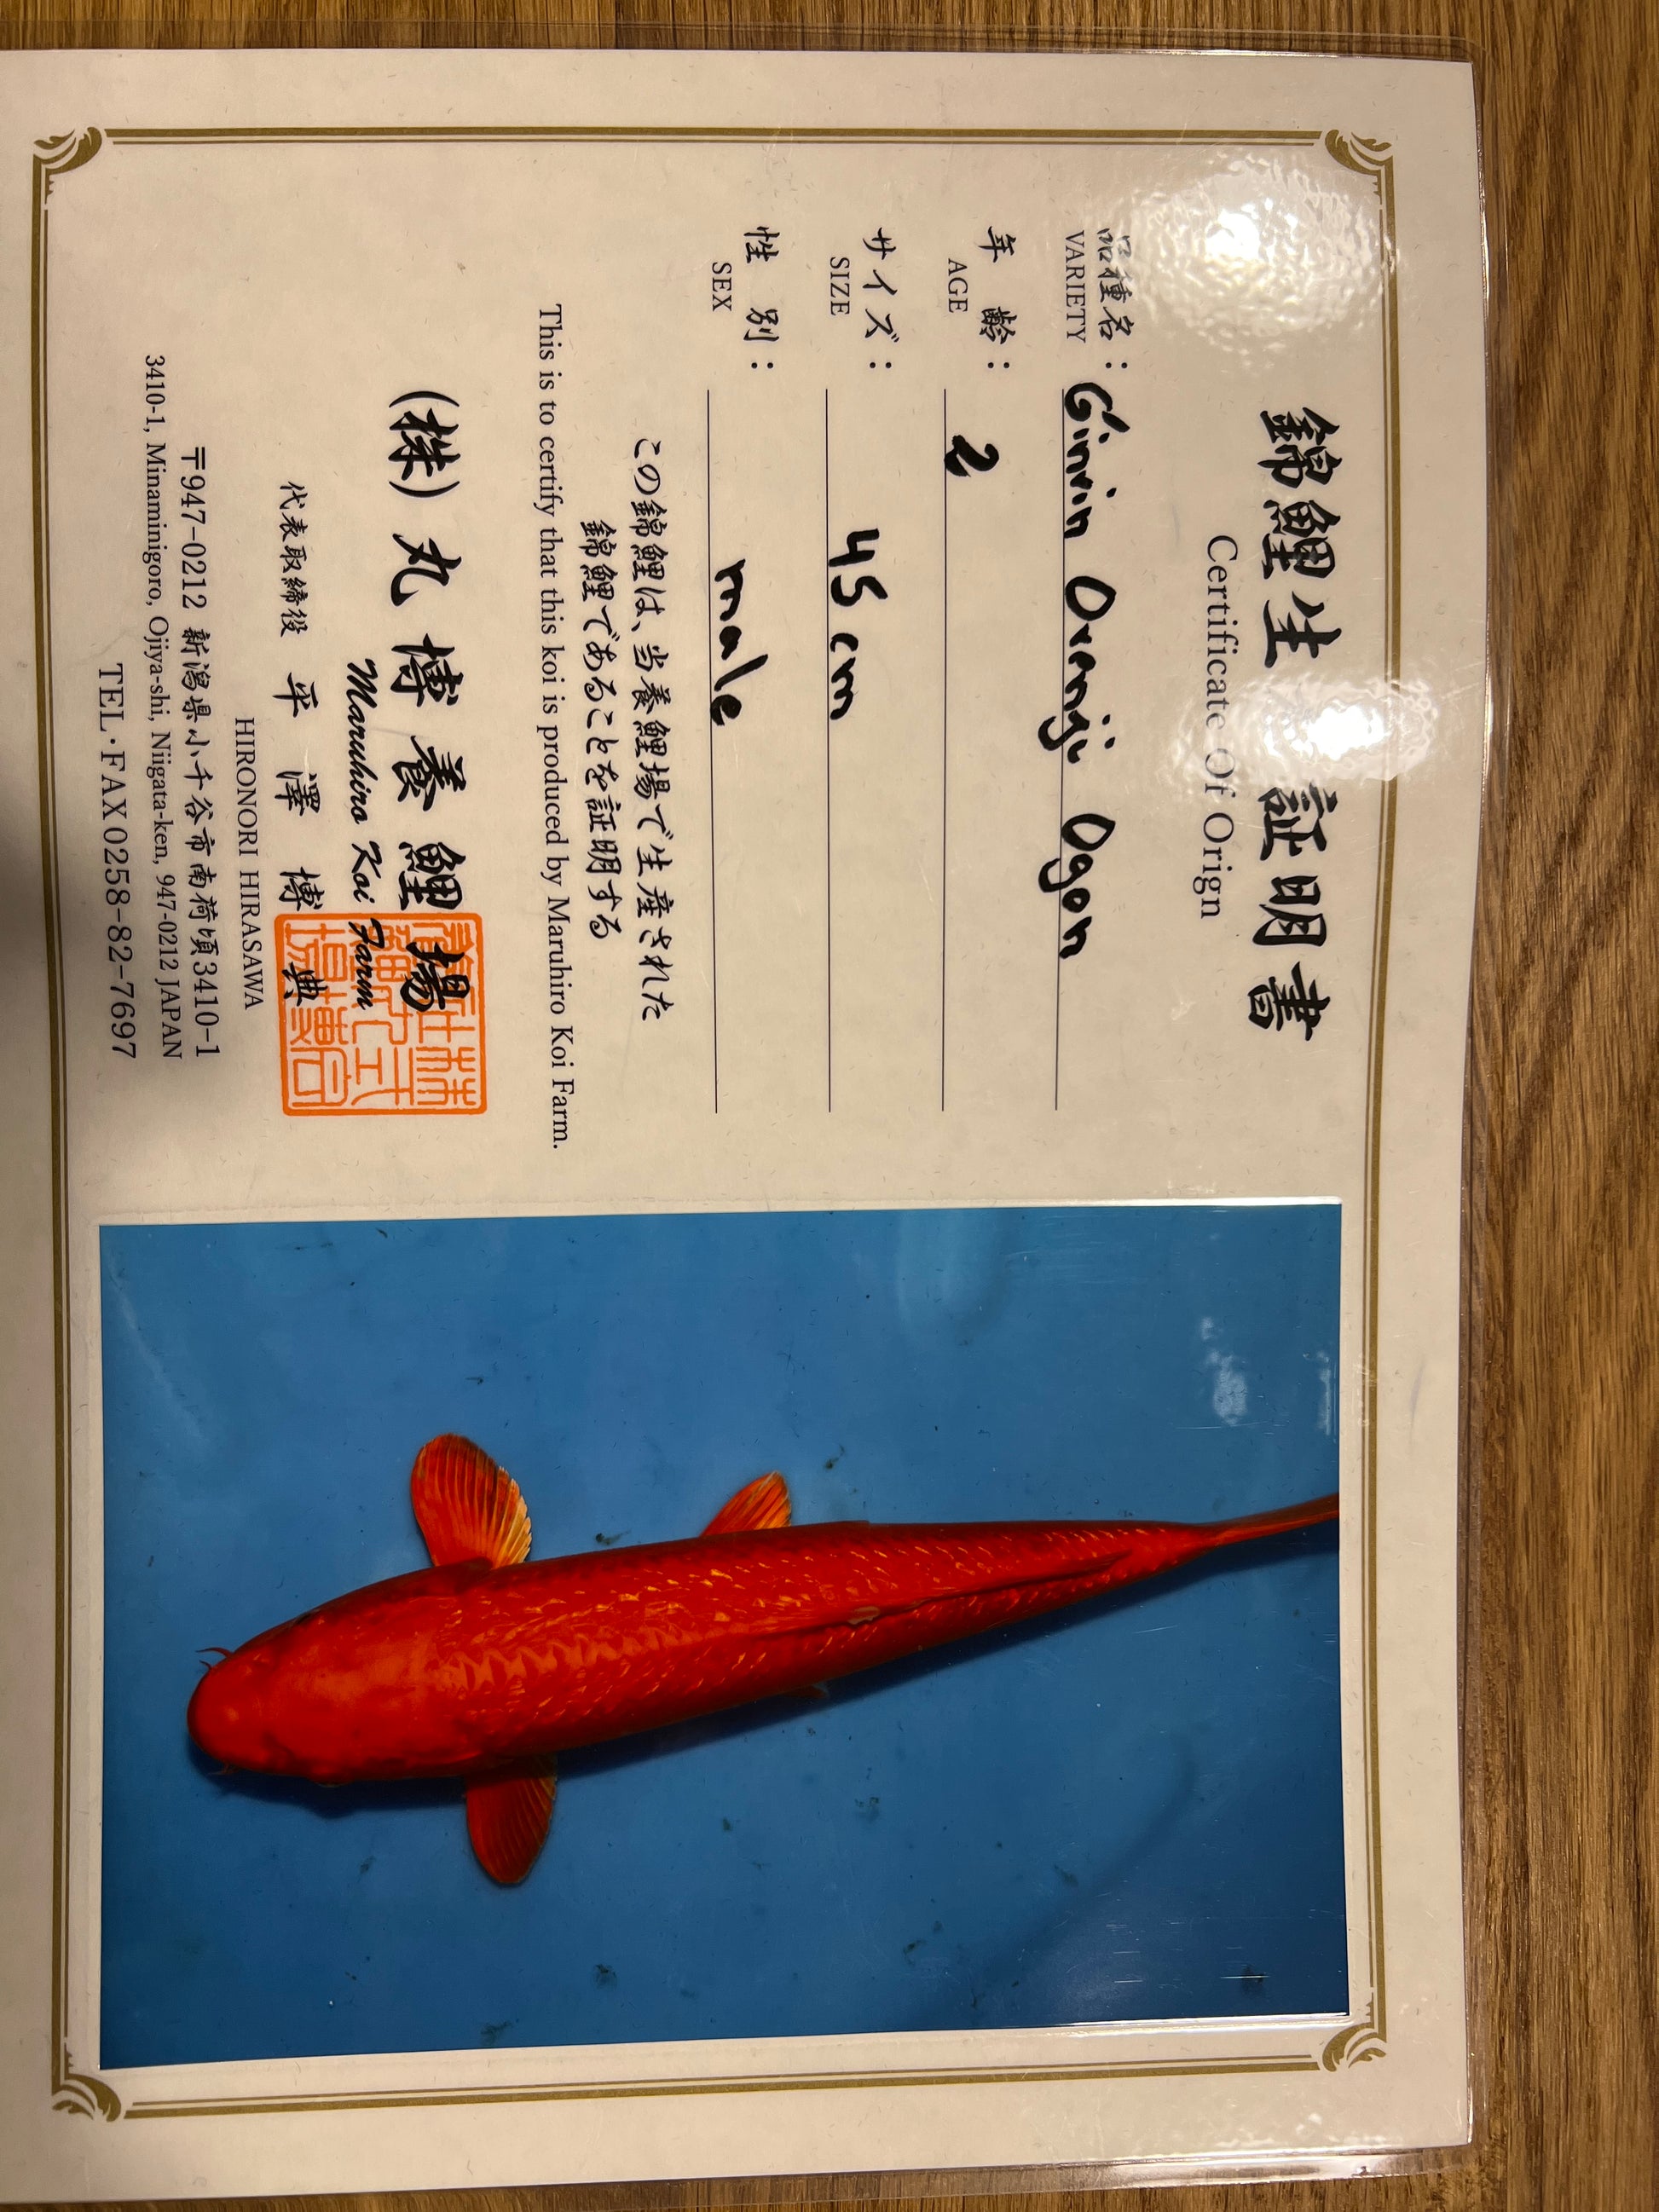 錦鯉生 証明書
Certificate Of Orign
品種名: Ginrin Orenji Ogon
VARIETY
年齢: 2
AGE
サイズ: 45 cm
SIZE
性別: male
SEX
この錦鯉は、当養鯉場で生産された
錦鯉であることを証明する
This is to certify that this koi is produced by Maruhiro Koi Farm.
(株)丸博養鯉場
Maruhiro Koi Farm
代表取締役 平澤博典
HIRONORI HIRASAWA
〒947-0212 新潟県小千谷市南荷頃3410-1
3410-1, Minaminigoro, Ojiya-shi, Niigata-ken, 947-0212 JAPAN
TEL・FAX 0258-82-7697